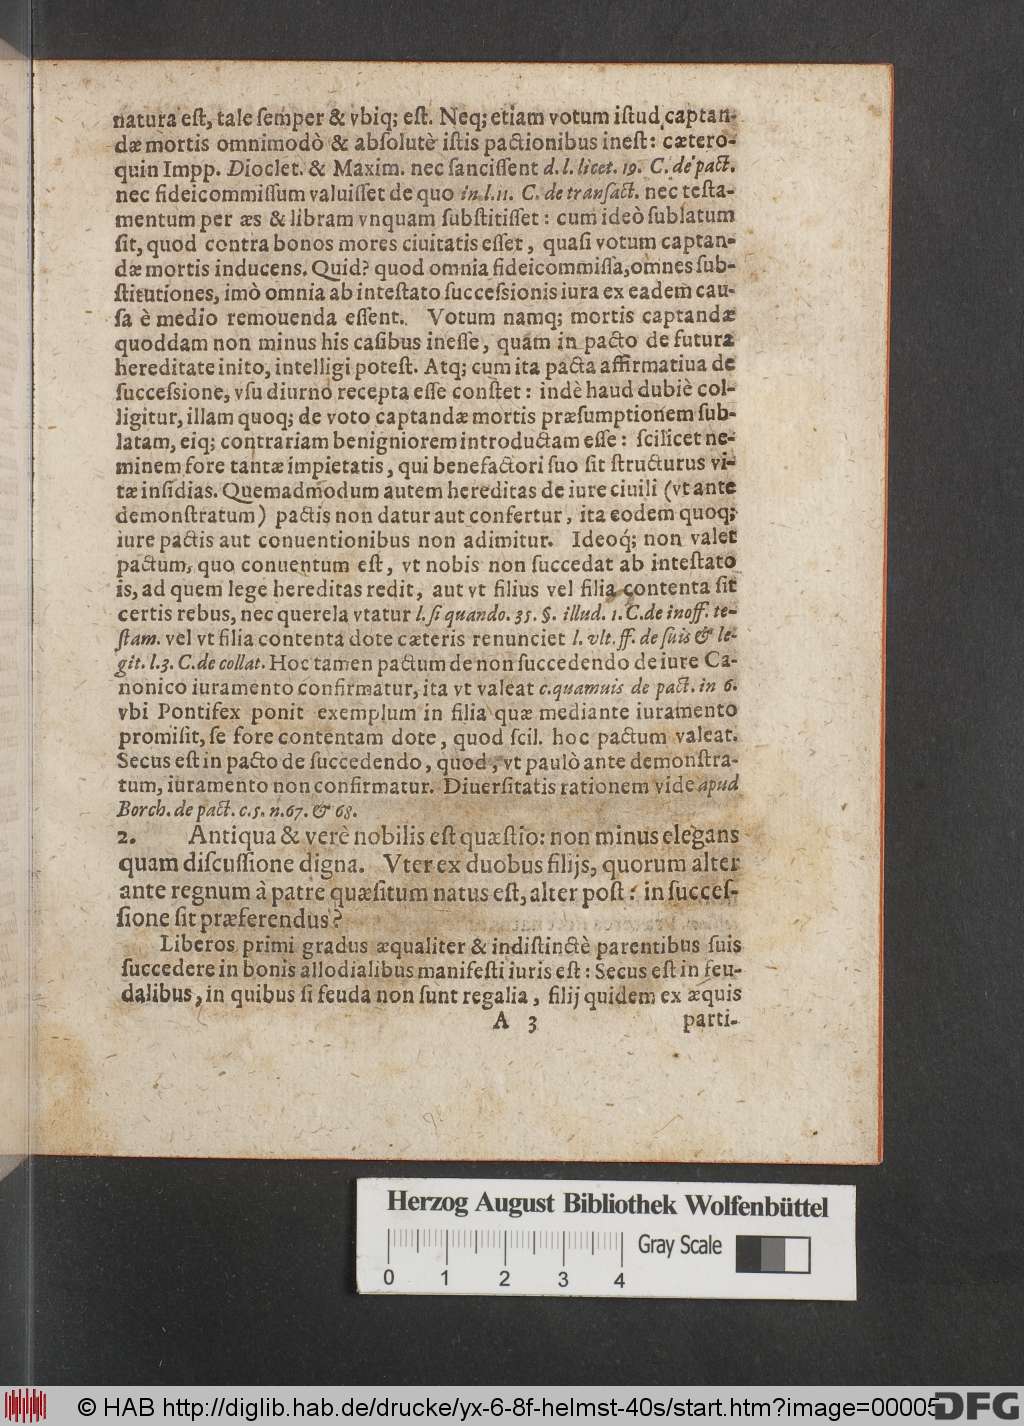 natura est, tale semper & vbiq; est. Neq; etiam votum istud captan-
dæ mortis omnimodò & absolutè istis pactionibus inest: cætero-
quin Impp. Dioclet. & Maxim. nec sancissent d. l. licet. 19. C. de pact.
nec fideicommissum valuisset de quo in l. 11. C. de transact. nec testa-
mentum per æs & libram vnquam substitisset: cum ideò sublatum
sit, quod contra bonos mores ciuitatis esset, quasi votum captan-
dæ mortis inducens. Quid? quod omnia fideicommissa, omnes sub-
stitutiones, imò omnia ab intestato successionis iura ex eadem cau-
sa è medio remouenda essent. Votum namq; mortis captandæ
quoddam non minus his casibus inesse, quàm in pacto de futura
hereditate inito, intelligi potest. Atq; cum ita pacta affirmatiua de
successione, vsu diurno recepta esse constet: indè haud dubiè col-
ligitur, illam quoq; de voto captandæ mortis præsumptionem sub-
latam, eiq; contrariam benigniorem introductam esse: scilicet ne-
minem fore tantæ impietatis, qui benefactori suo sit structurus vi-
tæ insidias. Quemadmodum autem hereditas de iure ciuili (vt ante
demonstratum) pactis non datur aut confertur, ita eodem quoq;
iure pactis aut conuentionibus non adimitur. Ideoq́; non valet
pactum, quo conuentum est, vt nobis non succedat ab intestato
is, ad quem lege hereditas redit, aut vt filius vel filia contenta sit
certis rebus, nec querela vtatur l. si quando. 35. §. illud. 1. C. de inoff. te-
stam. vel vt filia contenta dote cæteris renunciet l. vlt. ff. de suis & le-
git. l. 3. C. de collat. Hoc tamen pactum de non succedendo de iure Ca-
nonico iuramento confirmatur, ita vt valeat c. quamuis de pact. in 6.
vbi Pontifex ponit exemplum in filia quæ mediante iuramento
promisit, se fore contentam dote, quod scil. hoc pactum valeat.
Secus est in pacto de succedendo, quod, vt paulò ante demonstra-
tum, iuramento non confirmatur. Diuersitatis rationem vide apud
Borch. de pact. c. 5. n. 67. & 68.
2. Antiqua & verè nobilis est quæstio: non minus elegans
quam discussione digna. Vter ex duobus filijs, quorum alter
ante regnum à patre quæsitum natus est, alter post: in succes-
sione sit præferendus?
Liberos primi gradus æqualiter & indistinctè parentibus suis
succedere in bonis allodialibus manifesti iuris est: Secus est in feu-
dalibus, in quibus si feuda non sunt regalia, filij quidem ex æquis
A 3 parti-
Herzog August Bibliothek Wolfenbüttel
Gray Scale
0 1 2 3 4
© HAB http://diglib.hab.de/drucke/yx-6-8f-helmst-40s/start.htm?image=00005
DFG